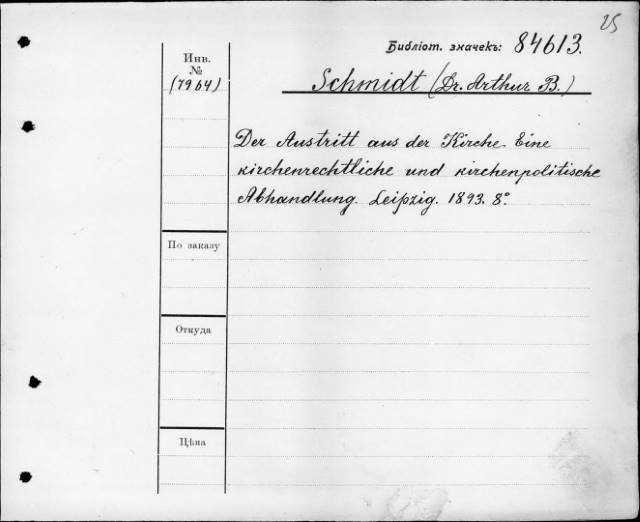 25
Библіот. значекъ: 84613.
Инв.
№
(7964)
Schmidt (Dr. Arthur B.)
Der Austritt aus der Kirche. Eine
kirchenrechtliche und kirchenpolitische
Abhandlung. Leipzig. 1893. 8°.
По заказу
Откуда
Цѣна